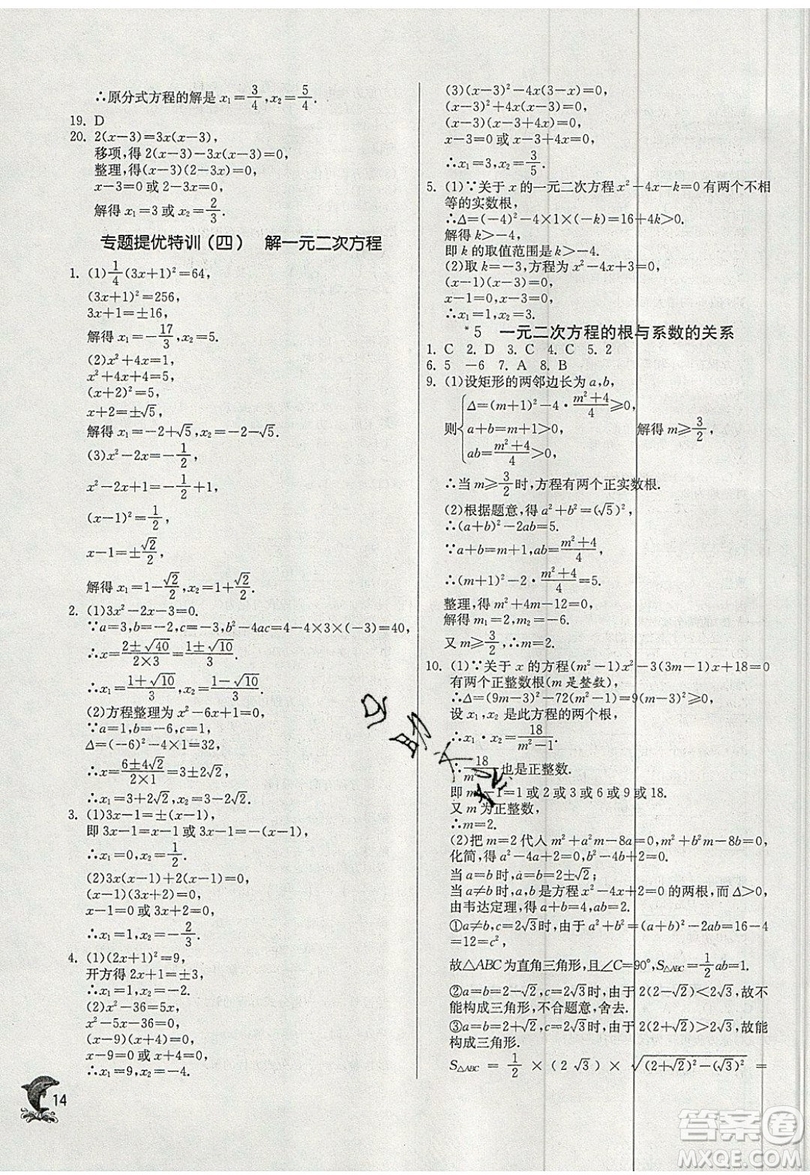 ∴原分式方程的解是 x₁=3/4, x₂=5/4.
19. D
20. 2(x-3)=3x(x-3),
移项,得 2(x-3)-3x(x-3)=0,
整理,得(x-3)(2-3x)=0,
x-3=0 或 2-3x=0,
解得 x₁=3 或 x₂=2/3.
专题提优特训(四) 解一元二次方程
1. (1)1/4(3x+1)²=64,
(3x+1)²=256,
3x+1=±16,
解得 x₁=-17/3, x₂=5.
(2)x²+4x=1,
x²+4x+4=5,
(x+2)²=5,
x+2=±√5,
解得 x₁=-2+√5, x₂=-2-√5.
(3)x²-2x=-1/2,
x²-2x+1=-1/2+1,
(x-1)²=1/2,
x-1=±√2/2,
解得 x₁=1-√2/2, x₂=1+√2/2.
2. (1)3x²-2x-3=0.
∵a=3,b=-2,c=-3,b²-4ac=4-4×3×(-3)=40,
∴x=(2±√40)/(2×3)=(1±√10)/3,
∴x₁=(1+√10)/3, x₂=(1-√10)/3.
(2)方程整理为 x²-6x+1=0,
Δ=(-6)²-4×1=32,
∴x=(6±4√2)/(2×1)=3±2√2,
∴x₁=3+2√2, x₂=3-2√2.
3. (1)3x-1=±(x-1),
即 3x-1=x-1 或 3x-1=-(x-1),
∴x₁=0, x₂=1/2.
(2)3x(x-1)+2(x-1)=0,
(x-1)(3x+2)=0,
x-1=0 或 3x+2=0,
∴x₁=1, x₂=-2/3.
4. (1)(2x+1)²=9,
开方得 2x+1=±3,
∴x₁=1, x₂=-2.
(2)x²-36=5x,
x²-5x-36=0,
(x-9)(x+4)=0,
x-9=0 或 x+4=0,
∴x₁=9, x₂=-4.
14
(3)(x-3)²-4x(3-x)=0,
(x-3)²+4x(x-3)=0,
(x-3)(x-3+4x)=0,
x-3=0 或 x-3+4x=0,
∴x₁=3, x₂=3/5.
5. (1)∵关于 x 的一元二次方程 x²-4x-k=0 有两个不相
等的实数根,
∴Δ=(-4)²-4×1×(-k)=16+4k>0,
解得 k>-4,
即 k 的取值范围是 k>-4.
(2)取 k=-3,方程为 x²-4x+3=0,
(x-3)(x-1)=0,
x-3=0 或 x-1=0,
∴x₁=1, x₂=3.
*5 一元二次方程的根与系数的关系
1. C 2. D 3. C 4. C 5. 2
6. 5 -6 7. A 8. B
9. (1)设矩形的两邻边长为 a,b,
Δ=(m+1)²-4·(m²+4)/4≥0,
则{a+b=m+1>0, 解得 m≥3/2,
ab=(m²+4)/4>0,
∴当 m≥3/2时,方程有两个正实数根.
(2)根据题意,得 a²+b²=(√5)²,
∴(a+b)²-2ab=5.
∵a+b=m+1,ab=(m²+4)/4,
∴(m+1)²-2×(m²+4)/4=5.
整理,得 m²+4m-12=0,
解得 m₁=2,m₂=-6.
又 m≥3/2,∴m=2.
10. (1)∵关于 x 的方程(m²-1)x²-3(3m-1)x+18=0
有两个正整数根(m 是整数),
∴Δ=(9m-3)²-72(m²-1)=9(m-3)²≥0,
设 x₁,x₂ 是此方程的两个根,
∴x₁·x₂=18/(m²-1).
也是正整数.
即 m²-1=1 或 2 或 3 或 6 或 9 或 18,
又 m 为正整数,
∴m=2.
(2)把 m=2 代入 m²+a²m-8a=0,m²+b²m-8b=0,
化简,得 a²-4a+2=0,b²-4b+2=0,
当 a=b 时,a=b=2±√2;
当 a≠b 时,a,b 是方程 x²-4x+2=0 的两根,而 Δ>0,
由韦达定理,得 a+b=4>0,ab=2>0,则 a>0,b>0.
①a≠b,c=2√3时,由于 a²+b²=(a+b)²-2ab=16-4
=12=c²,
故△ABC为直角三角形,且∠C=90°,S△ABC=1/2ab=1.
②a=b=2-√2,c=2√3时,由于 2(2-√2)<2√3,故不
能构成三角形,不合题意,舍去.
③a=b=2+√2,c=2√3时,由于 2(2+√2)>2√3,故能
构成三角形.
S△ABC=1/2×(2√3)×√((2+√2)²-(√3)²)=
答案圈
MXQE.COM